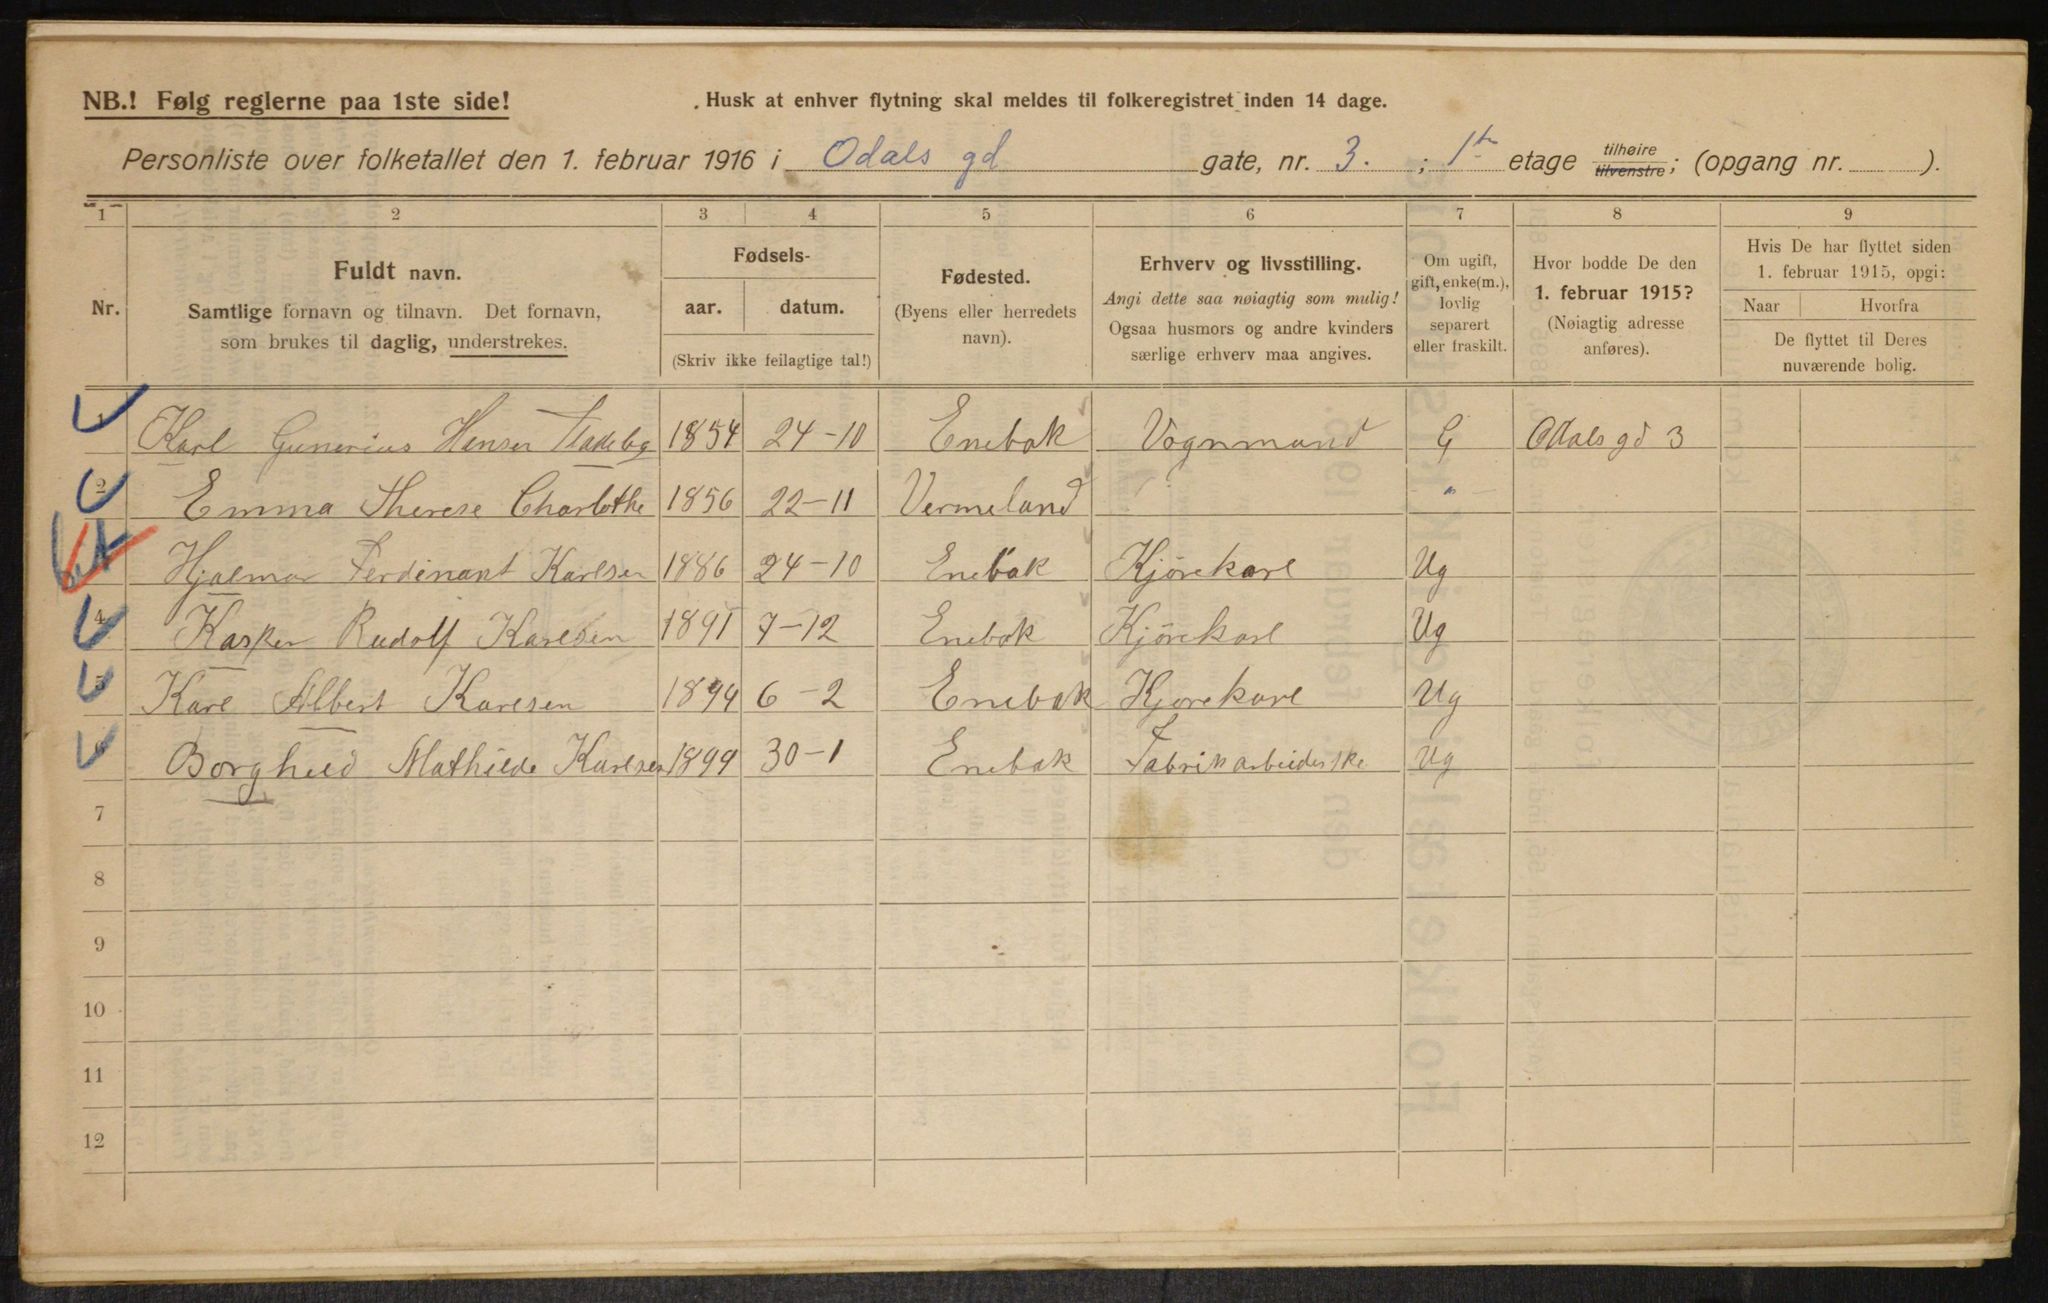 NB.! Følg reglerne paa 1ste side!
Husk at enhver flytning skal meldes til folkeregistret inden 14 dage.
Personliste over folketallet den 1. februar 1916 i Odals gd gate, nr. 3. ; 1ste etage tilhøire tilvenstre; (opgang nr. ).
1 2 3 4 5 6 7 8 9
Nr.
Fuldt navn.
Samtlige fornavn og tilnavn. Det fornavn,
som brukes til daglig, understrekes.
Fødsels-
aar. datum.
(Skriv ikke feilagtige tal!)
Fødested.
(Byens eller herredets
navn).
Erhverv og livsstilling.
Angi dette saa nøiagtig som mulig!
Ogsaa husmors og andre kvinders
særlige erhverv maa angives.
Om ugift,
gift, enke(m.),
lovlig
separert
eller fraskilt.
Hvor bodde De den
1. februar 1915?
(Nøiagtig adresse
anføres).
Hvis De har flyttet siden
1. februar 1915, opgi:
Naar Hvorfra
De flyttet til Deres
nuværende bolig.
1 Karl Gunerius Hansen 1854 24-10 Enebak Vognmand G Odals gd 3
2 Emma Therese Charlothe 1856 22-11 Vermeland "
Hjalmar Ferdinant Karlsen 1886 24-10 Enebak Kjørekarl Ug
4 Kasper Rudolf Karlsen 1891 7-12 Enebak Kjørekarl Ug
5 Karl Albert Karlsen 1894 6-2 Enebak Kjørekarl Ug
6 Borghild Mathilde Karlsen 1899 30-1 Enebak Fabrikarbeiderske Ug
7
8
9
10
11
12